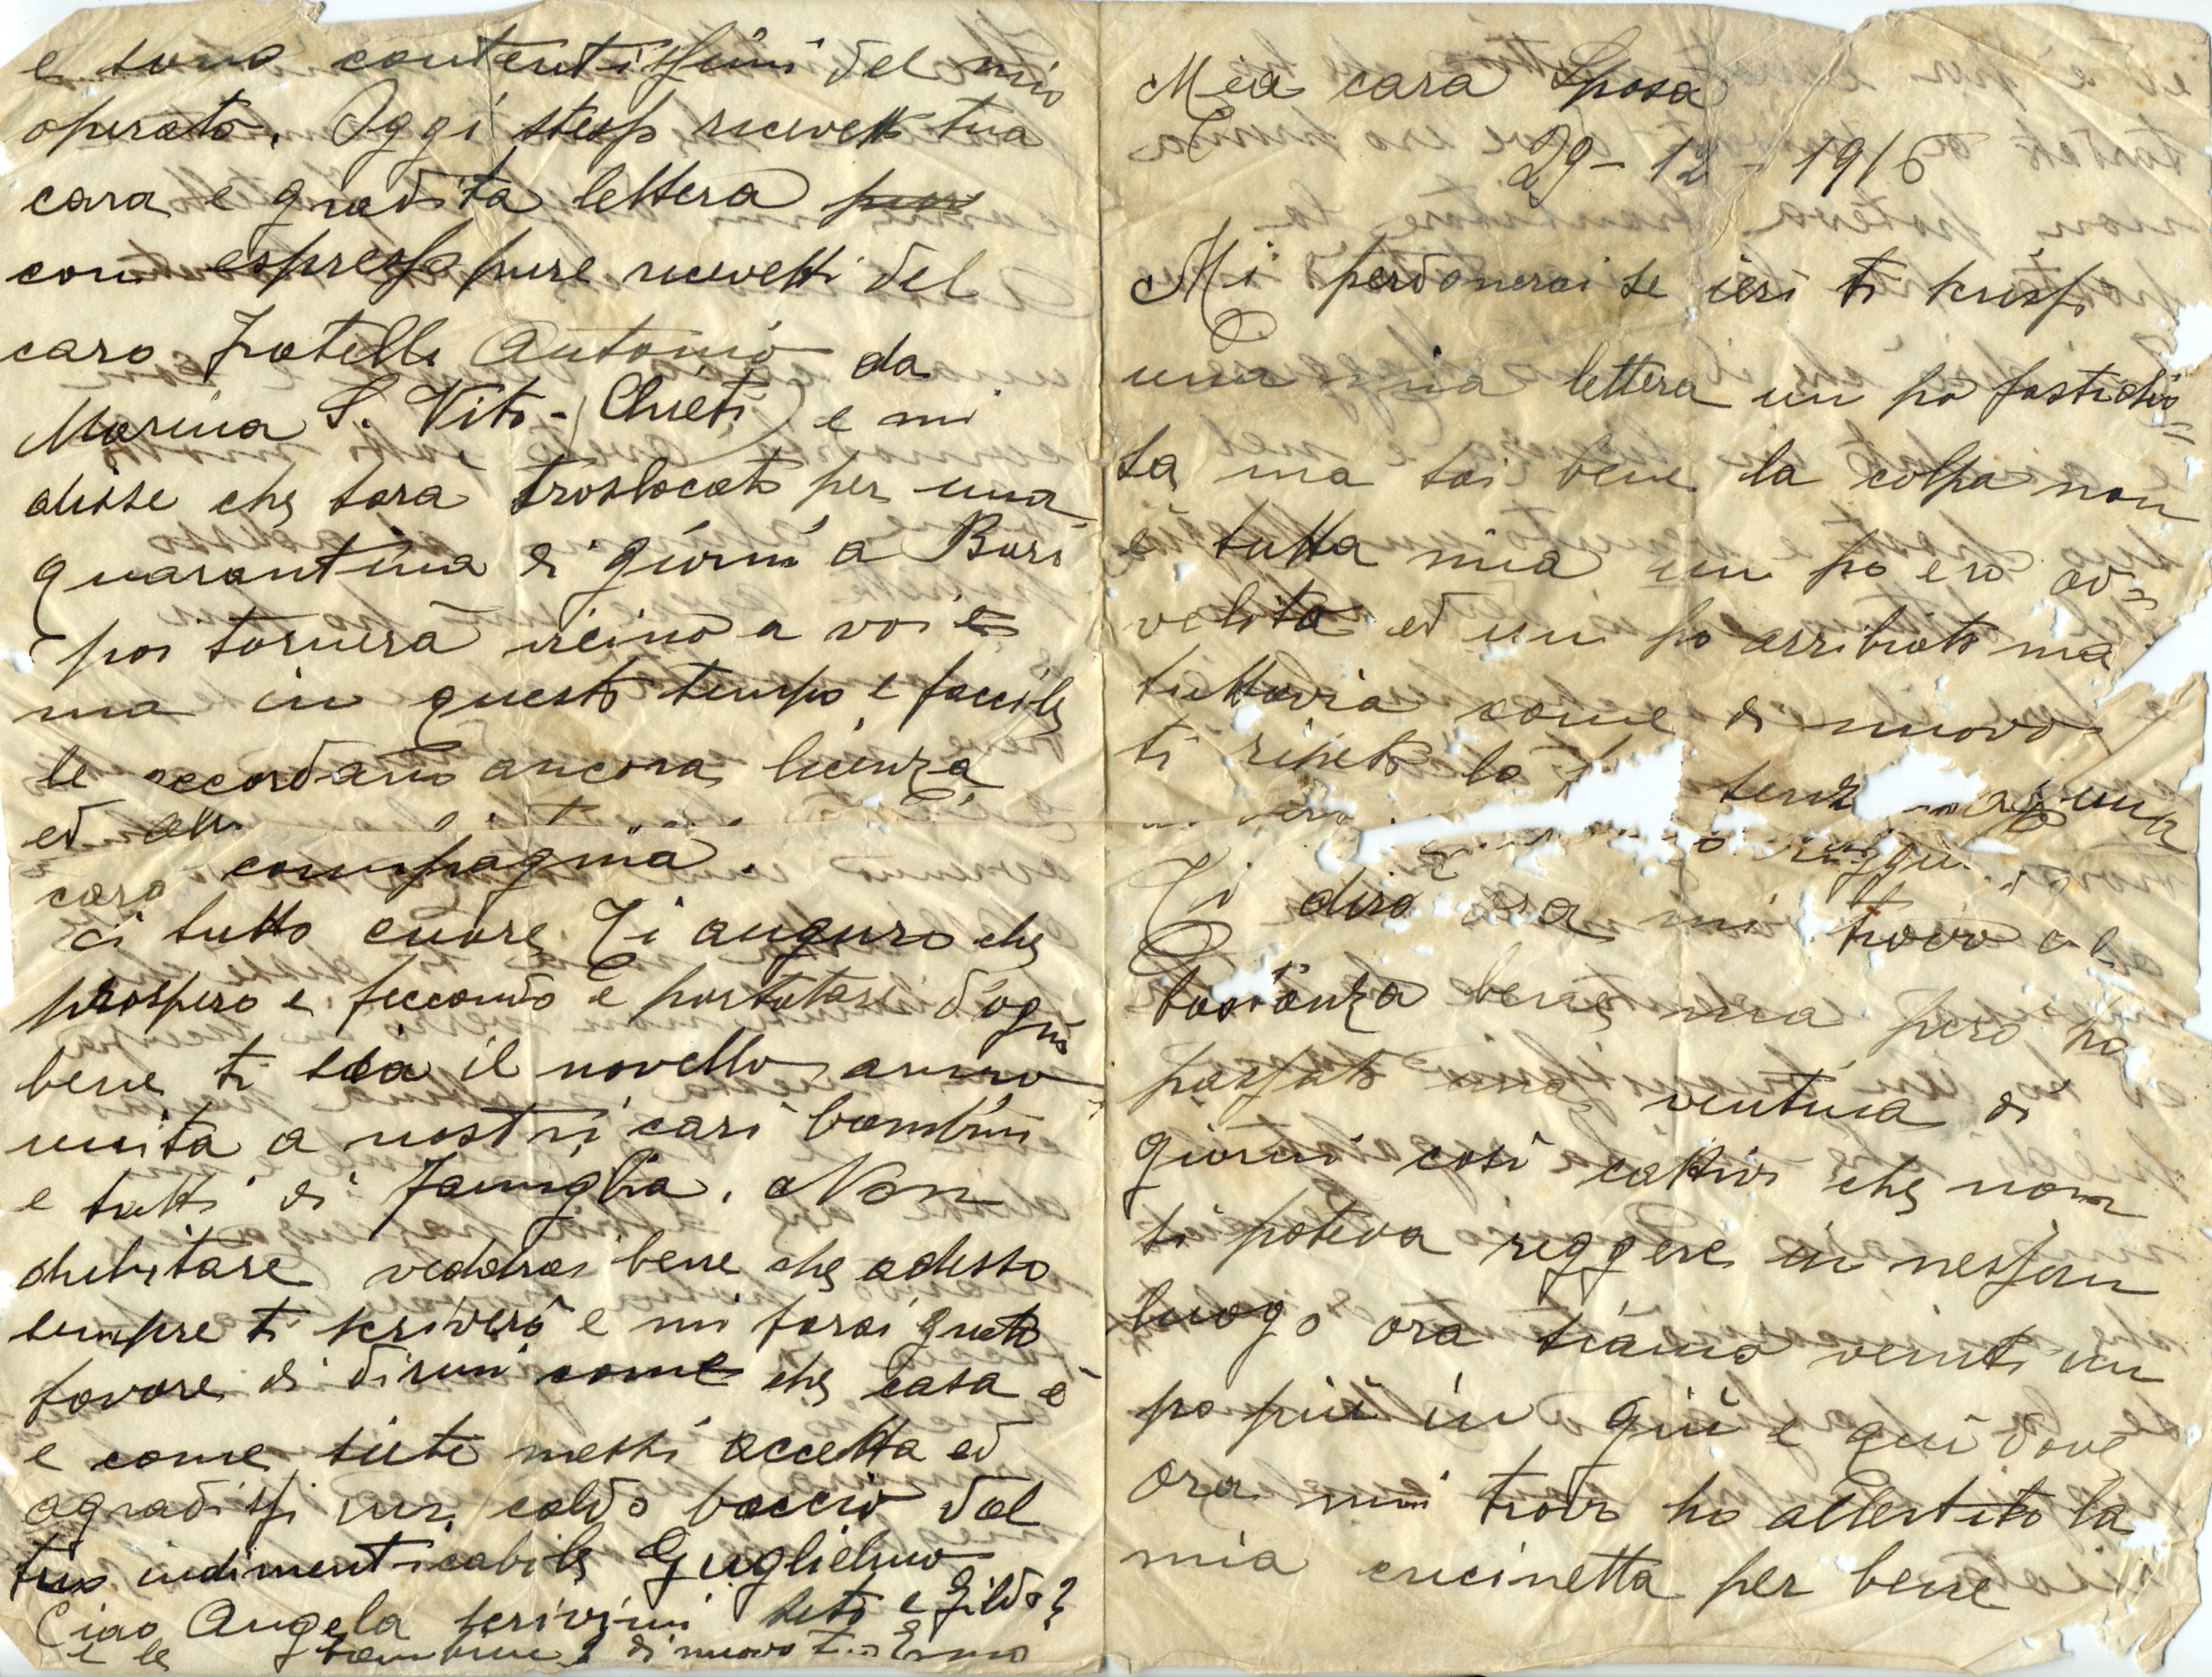 Mia cara Sposa
29 - 12 - 1916
Mi perdonerai se ieri ti scrissi
una mia lettera un po fastidio=
sa ma sai bene la colpa non
è tutta mia un po ero av=
velito ed un po arribiato ma
tuttavia come di nuovo
ti ripeto la
Ti dirò ora mi trovo ab
bastanza bene ma però ho
passato una ventina di
giorni così cattivi che non
si poteva reggere in nessun
luogo ora siamo venuti un
po più in giù e qui dove
ora mi trovo ho allestito la
mia cucinetta per bene
e sono contentissimi del mio
operato. Oggi stesso ricevetti tua
cara e gradita lettera
con espresso pure ricevetti del
caro fratello Antonio da
Marina S. Vito - (Chieti) e mi
disse che sarà traslocato per una
quarantina di giorni a Bari
poi tornerà vicino a voi e
ma in questo tempo e faccile
le accordano ancora licenza
ed
cara compagnia.
di tutto cuore Ti auguro che
prospero e feccondo e portatare d'ogni
bene ti sia il novello anno
unita a nostri cari bambini
e tutti di famiglia. Non
dubitare veddrai bene che adesso
sempre ti scriverò e mi farai questo
favore di dirmi come che casa è
e come siete messi accetta ed
agradissi un caldo baccio dal
tuo indimenticabile Guglielmo
Ciao Angela scrivimi e Gildo?
e le bambine? di nuovo